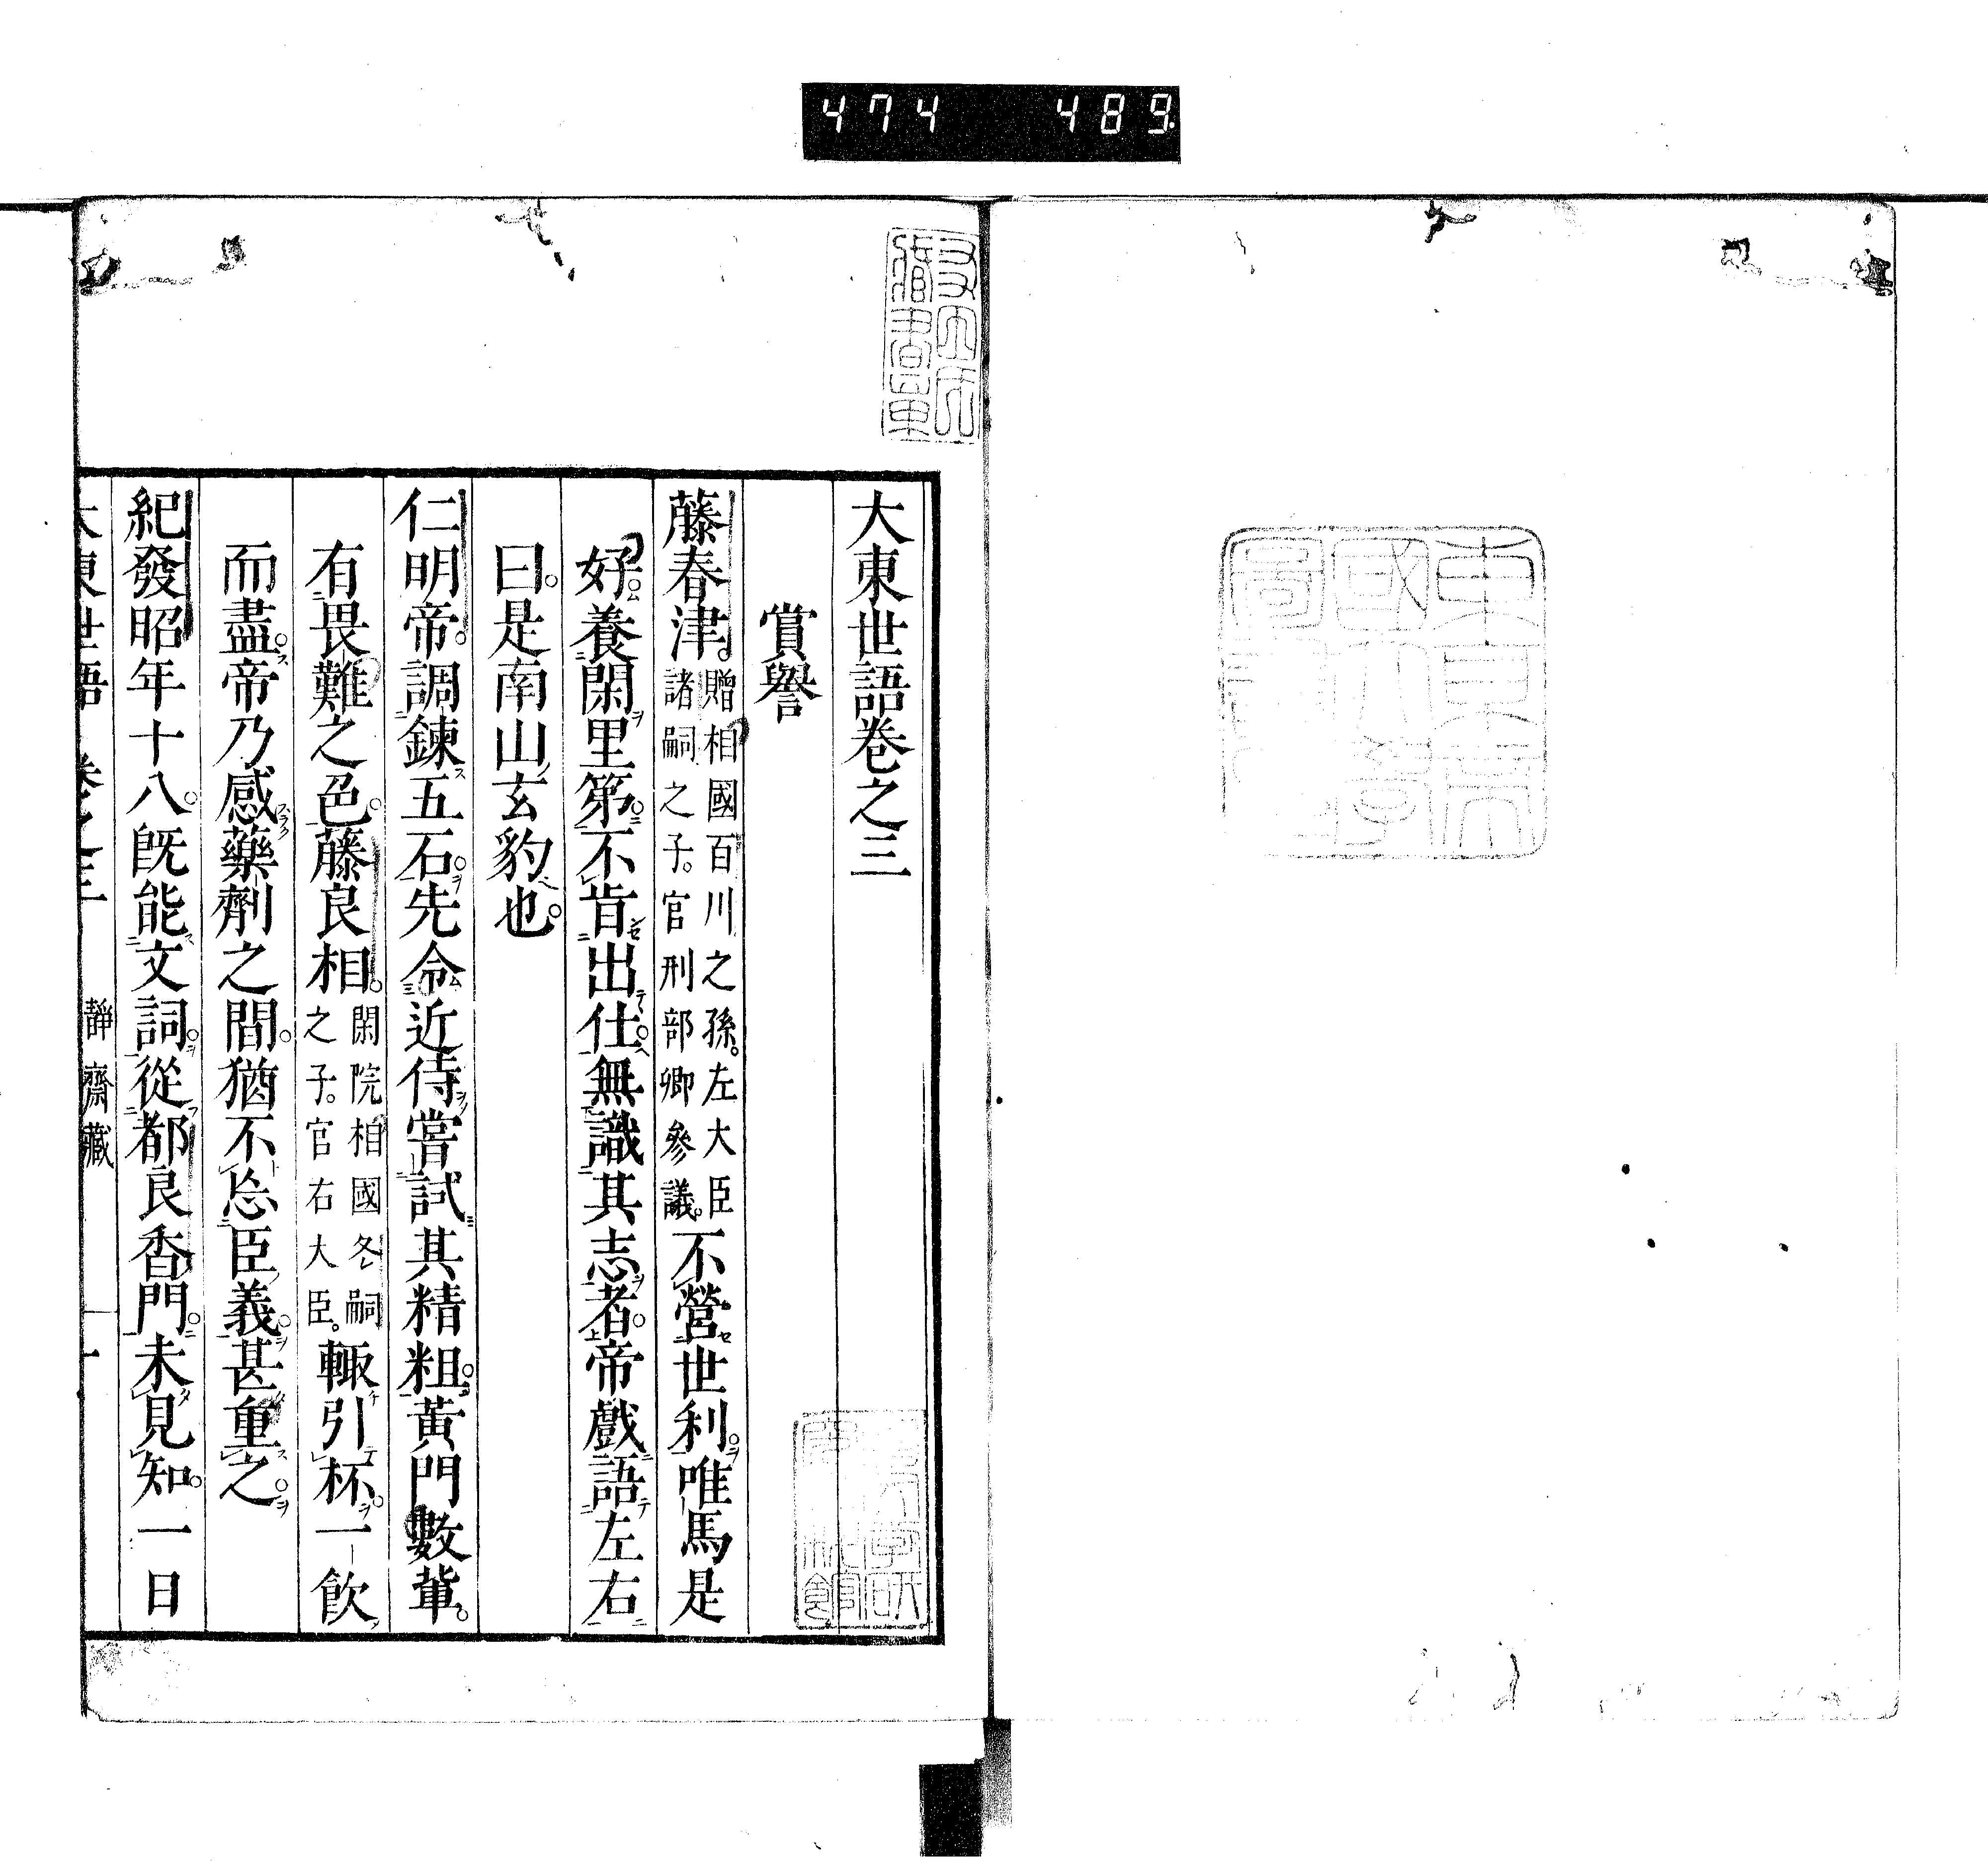 474 489
大東世語卷之三
賞譽
藤春津。贈相國百川之孫。左大臣諸嗣之子。官刑部卿參議。不營世利。唯馬是
好。養閑里第。不肯出仕。無識其志者。帝戲語左右
曰。是南山玄豹也。
仁明帝。調鍊五石。先令近侍嘗試其精粗。黃門數輩。
有畏難之色。藤良相。閑院相國冬嗣之子。官右大臣。輙引杯。一飲
而盡。帝乃感藥劑之間。猶不忘臣義。甚重之。
紀發昭年十八。旣能文詞。從都良香門。未見知。一日
大東世語 卷之三 靜齋藏